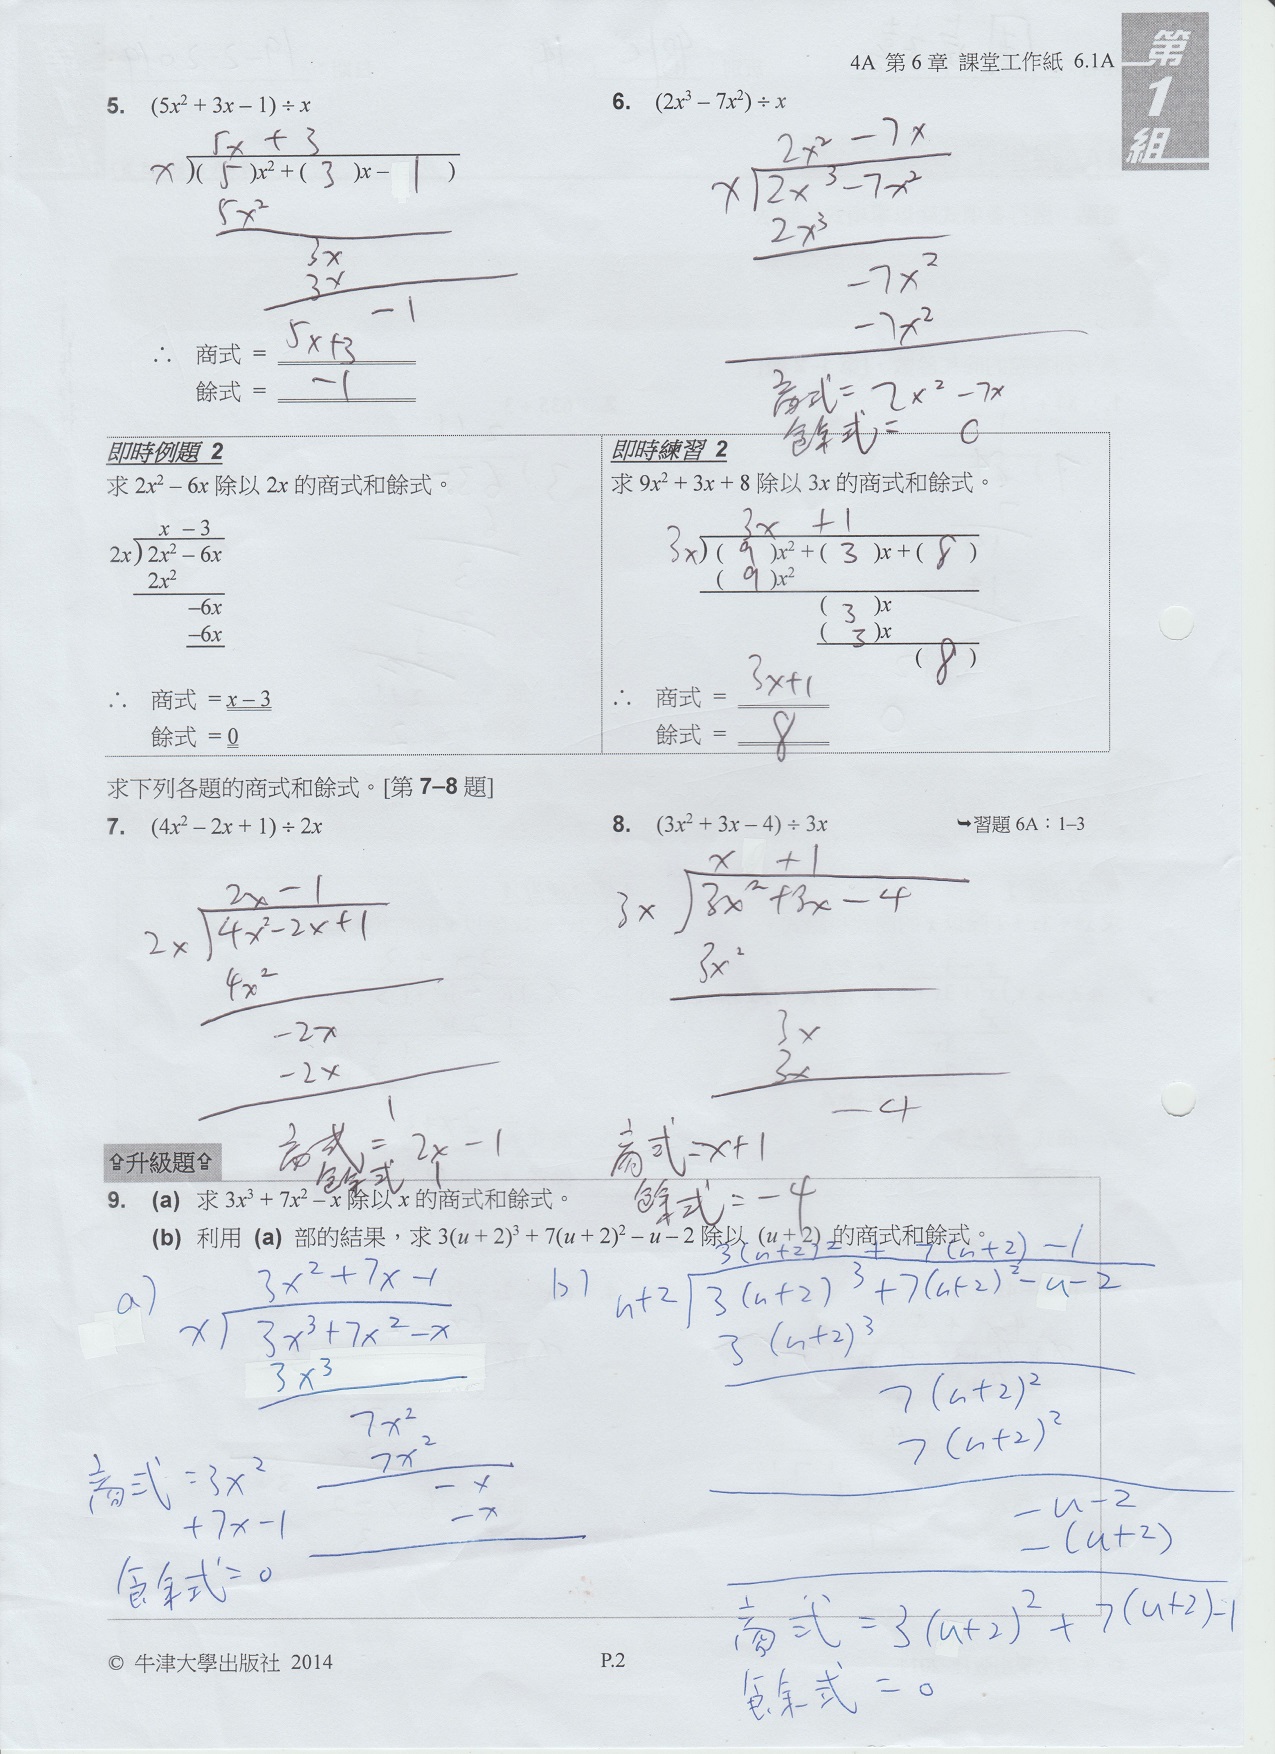 4A 第 6 章 課堂工作紙 6.1A
第
1
組
5. (5x² + 3x – 1) ÷ x
5x + 3
x )( 5 )x² + ( 3 )x – 1 )
5x²
3x
3x
– 1
∴ 商式 = 5x+3
餘式 = –1
6. (2x³ – 7x²) ÷ x
2x² – 7x
x 2x³ – 7x²
2x³
–7x²
–7x²
商式 = 2x² – 7x
餘式 = 0
即時例題 2
求 2x² – 6x 除以 2x 的商式和餘式。
x – 3
2x ) 2x² – 6x
2x²
–6x
–6x
∴ 商式 = x – 3
餘式 = 0
即時練習 2
求 9x² + 3x + 8 除以 3x 的商式和餘式。
3x + 1
3x )( 9 )x² + ( 3 )x + ( 8 )
( 9 )x²
( 3 )x
( 3 )x
( 8 )
∴ 商式 = 3x+1
餘式 = 8
求下列各題的商式和餘式。[第 7–8 題]
7. (4x² – 2x + 1) ÷ 2x
2x – 1
2x 4x² – 2x + 1
4x²
–2x
–2x
1
商式 = 2x – 1
餘式 1
8. (3x² + 3x – 4) ÷ 3x
➥習題 6A：1–3
x + 1
3x 3x² + 3x – 4
3x²
3x
3x
– 4
商式 = x + 1
餘式 = – 4
⇧升級題⇧
9. (a) 求 3x³ + 7x² – x 除以 x 的商式和餘式。
(b) 利用 (a) 部的結果，求 3(u + 2)³ + 7(u + 2)² – u – 2 除以 (u + 2) 的商式和餘式。
a)
3x² + 7x – 1
x 3x³ + 7x² – x
3x³
7x²
7x²
– x
– x
商式 = 3x²
+ 7x – 1
餘式 = 0
b)
3(u+2)² + 7(u+2) – 1
u+2 3(u+2)³ + 7(u+2)² – u – 2
3(u+2)³
7(u+2)²
7(u+2)²
– u – 2
– (u+2)
商式 = 3(u+2)² + 7(u+2) – 1
餘式 = 0
© 牛津大學出版社 2014
P.2